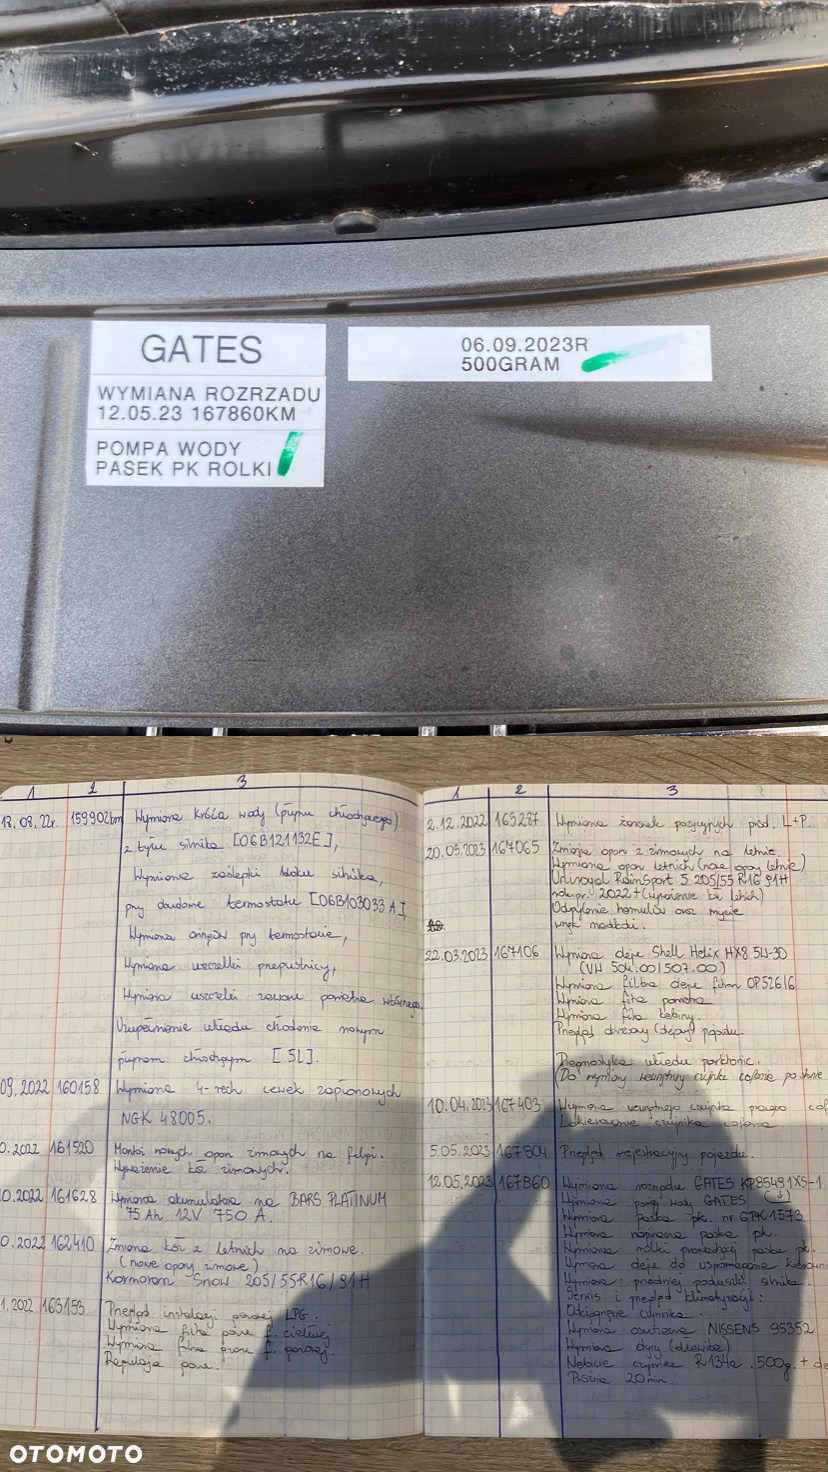 GATES
WYMIANA ROZRZADU
12.05.23 167860KM
POMPA WODY
PASEK PK ROLKI
06.09.2023R
500GRAM
1 2 3
18.08.22r. 159902km Wymiana króćca wody (płynu chłodzącego)
z tyłu silnika [06B121132E],
Wymiana zaślepki bloku silnika,
przy obudowie termostatu [06B103033A],
Wymiana oringów przy termostacie,
Wymiana uszczelki przepustnicy,
Wymiana uszczelki zaworu powietrza wtórnego.
Uzupełnienie układu chłodzenia nowym
płynem chłodzącym [5L].
09.2022 160158 Wymiana 4-rech cewek zapłonowych
NGK 48005.
0.2022 161520 Montaż nowych opon zimowych na felgi.
Wyważenie kół zimowych.
0.2022 161628 Wymiana akumulatora na BARS PLATINUM
75 Ah 12V 750 A.
0.2022 162410 Zmiana kół z letnich na zimowe.
(nowe opony zimowe)
Kormoran Snow 205/55R16/91H
1.2022 163153 Przegląd instalacji gazowej LPG.
Wymiana filtra gazu f. ciekłej
Wymiana filtra gazu f. gazowej.
Regulacja gazu.
1 2 3
2.12.2022 163287 Wymiana żarówek pozycyjnych przód. L+P.
20.03.2023 167065 Zmiana opon z zimowych na letnie.
Wymiana opon letnich (nowe opony letnie)
Uniroyal RainSport 5 205/55 R16 91H
rok pr. 2022 + (wyważenie kół letnich)
Odpylenie hamulców oraz mycie
wnęk nadkoli.
22.03.2023 167106 Wymiana oleju Shell Helix HX8 5W-30
(VW 504.00/507.00)
Wymiana filtra oleju filtron OP526/6
Wymiana filtra powietrza
Wymiana filtra kabiny.
Przegląd okresowy (olejowy) pojazdu.
Diagnostyka układu parktronic.
(Do wymiany wewnętrzny czujnik cofania po stronie
10.04.2023 167403 Wymiana wewnętrznego czujnika prawego cof
Lakierowanie czujnika cofania.
5.05.2023 167804 Przegląd rejestracyjny pojazdu.
12.05.2023 167860 Wymiana rozrządu GATES KP85491XS-1
Wymiana pompy wody GATES
Wymiana paska pk. nr 6PK1573
Wymiana napinacza paska pk.
Wymiana rolki prowadzącej paska pk.
Wymiana oleju do wspomagania kierowni
Wymiana przedniej poduszki silnika.
Serwis i przegląd klimatyzacji:
Odciągnięcie czynnika
Wymiana osuszacza NISSENS 95352
Wymiana dyszy (dławika)
Nabicie czynnika R134a 500g. + ole
Próżnia 20min.
OTOMOTO